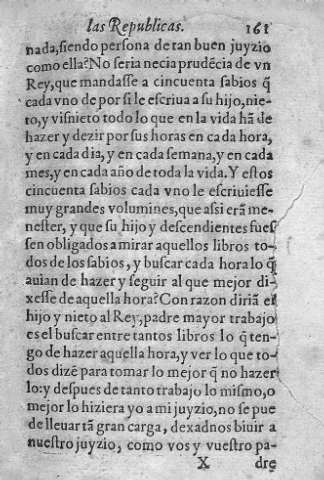 las Republicas. 161
nada, siendo persona de tan buen juyzio
como ella? No seria necia prudẽcia de vn
Rey, que mandasse a cincuenta sabios q̃
cada vno de por si le escriua a su hijo, nie-
to, y visnieto todo lo que en la vida hã de
hazer y dezir por sus horas en cada hora,
y en cada dia, y en cada semana, y en cada
mes, y en cada año de toda la vida. Y estos
cincuenta sabios cada vno le escriuiesse
muy grandes volumines, que assi erã me-
nester, y que su hijo y descendientes fues
sen obligados a mirar aquellos libros to-
dos de los sabios, y buscar cada hora lo q̃
auian de hazer y seguir al que mejor di-
xesse de aquella hora? Con razon diriã el
hijo y nieto al Rey, padre mayor trabajo
es el buscar entre tantos libros lo q̃ ten-
go de hazer aquella hora, y ver lo que to-
dos dizẽ para tomar lo mejor q̃ no hazer
lo: y despues de tanto trabajo lo mismo, o
mejor lo hiziera yo a mi juyzio, no se pue
de lleuar tã gran carga, dexadnos biuir a
nuestro juyzio, como vos y vuestro pa-
X dre